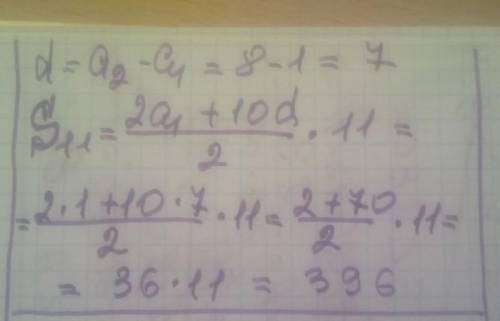 d = a₂ - a₁ = 8 - 1 = 7
S₁₁ = (2a₁ + 10d)/2 · 11 =
= (2·1 + 10·7)/2 · 11 = (2 + 70)/2 · 11 =
= 36 · 11 = 396